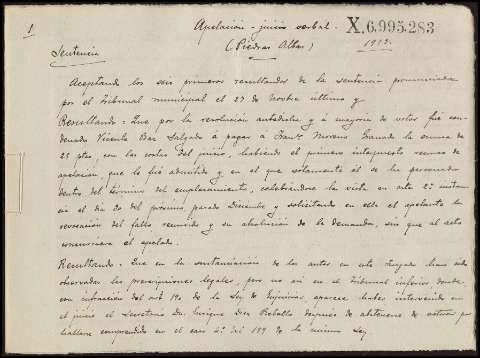 1
Apelacion - juicio verbal.
X.6.995.283
Sentencia
(Piedras Albas)
1912.
Aceptando los seis primeros resultandos de la sentencia pronunciada
por el Tribunal municipal el 27 de Novbre ultimo y
Resultando = Que por la resolucion antedicha y á mayoria de votos fué con-
denado Vicente Baz Salgado á pagar á Franco Moreno Granado la suma de
25 ptas, con las costas del juicio, habiendo el primero interpuesto recurso de
apelacion, que le fué admitido y en el que solamente él se ha personado
dentro del término del emplazamiento, celebrándose la vista en esta 2ª instan-
cia el dia 20 del próximo pasado Diciembre y solicitando en ella el apelante la
revocacion del fallo recurrido y su absolucion de la demanda, sin que al acto
concurriera el apelado.
Resultando = Que en la sustanciacion de los autos en este Juzgado han sido
observadas las prescripciones legales, pero no asi en el Tribunal inferior donde,
con infraccion del art 190 de la Ley de Enjuiciar, aparece haber intervenido en
el juicio el Secretario Dn. Enrique Diez despues de abstenerse de actuar por
hallarse comprendido en el caso 4º del 189 de la misma Ley.